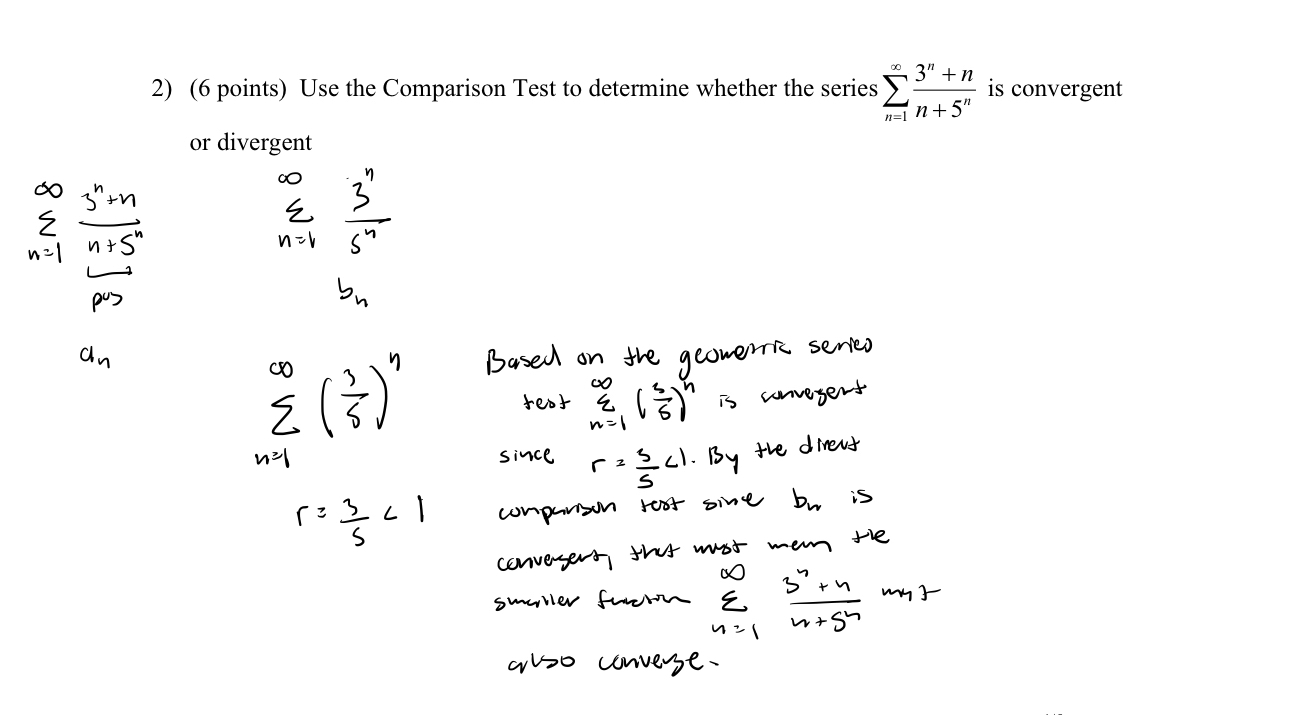 2) (6 points) Use the Comparison Test to determine whether the series ∑_{n=1}^{∞} (3^n + n)/(n + 5^n) is convergent
or divergent
∑_{n=1}^{∞} (3^n + n)/(n + 5^n)
pos
a_n
∑_{n=1}^{∞} 3^n/5^n
b_n
∑_{n=1}^{∞} (3/5)^n
r = 3/5 < 1
Based on the geometric series
test ∑_{n=1}^{∞} (3/5)^n is convergent
since r = 3/5 < 1. By the direct
comparison test since b_n is
convergent, that must mean the
smaller function ∑_{n=1}^{∞} (3^n + n)/(n + 5^n) must
also converge.